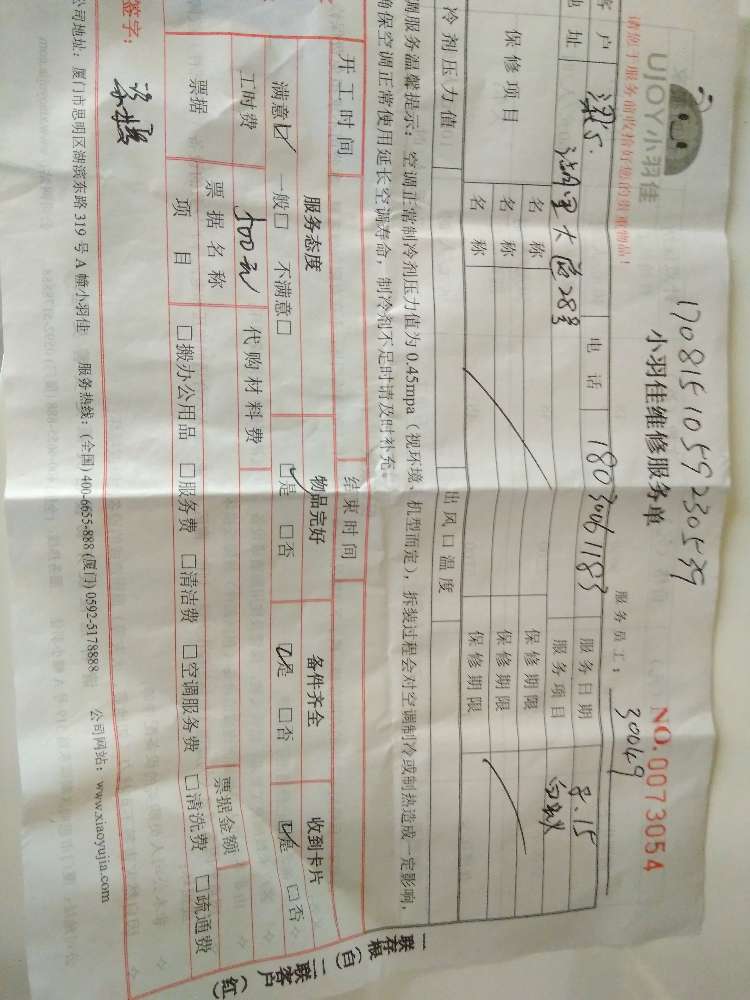 1708151059230539
UJOY小羽佳
小羽佳维修服务单
NO.0073054
请您于服务前收拾好您的贵重物品!
服务员工: 30049
客户 电话 18030061183 服务日期 8.15
地址 湖里大道28号 服务项目
保修项目 名称 保修期限
名称 保修期限
名称 保修期限
冷剂压力值 出风口温度
调服务温馨提示: 空调正常制冷剂压力值为0.45mpa(视环境、机型而定),拆装过程会对空调制冷或制热造成一定影响,
确保空调正常使用延长空调寿命,制冷剂不足时请及时补充
开工时间 结束时间
服务态度 物品完好 备件齐全 收到卡片
满意☑ 一般□ 不满意□ ☑是 □否 ☑是 □否 ☑是 □否
工时费 100元 代购材料费
票据 票据名称 票据金额
项目 □搬办公用品 □服务费 □清洁费 □空调服务费 □清洗费 □疏通费
签字:
公司地址: 厦门市思明区湖滨东路319号A幢小羽佳 服务热线: (全国) 400-6655-888 (厦门) 0592-5178888 公司网站: www.xiaoyujia.com
一联存根(白) 二联客户(红)